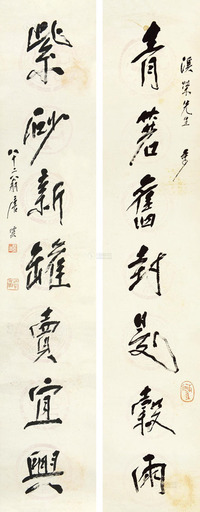 先生
青箬舊封題穀雨
紫砂新罐買宜興
八十二翁唐雲